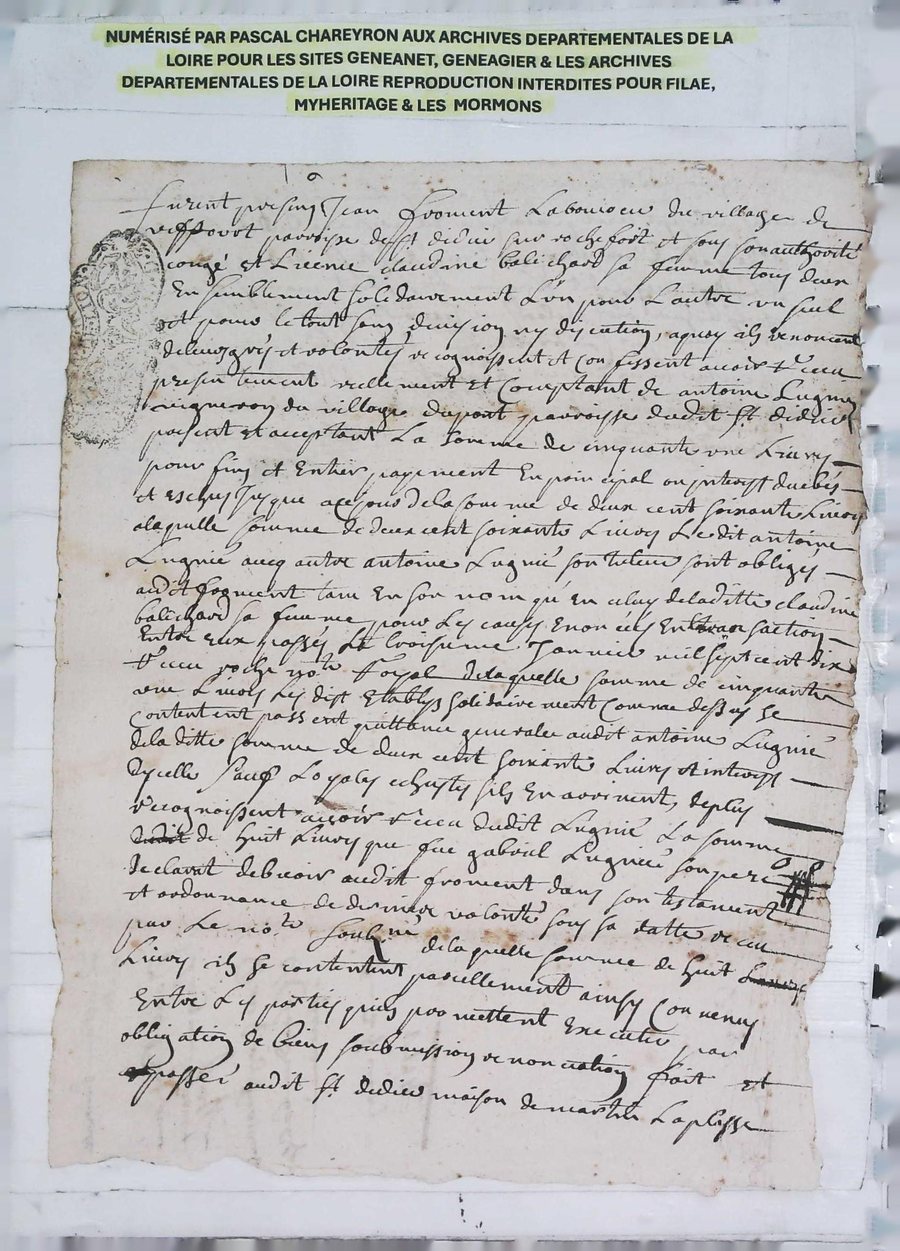 NUMÉRISÉ PAR PASCAL CHAREYRON AUX ARCHIVES DEPARTEMENTALES DE LA
LOIRE POUR LES SITES GENEANET, GENEAGIER & LES ARCHIVES
DEPARTEMENTALES DE LA LOIRE REPRODUCTION INTERDITES POUR FILAE,
MYHERITAGE & LES MORMONS
furent presing Jean froment Laboureur du village de
parroisse de St didier sur rochefort et sous son authorité
congé et Licence claudine balichard sa femme tous deux
Ensemblement solidairement L'un pour L'autre un seul
et pour le tout sans division ny discution, aquoy ils renoncent
de leurs grés et volontés recognoissent et confessent avoir receu
presentement reellement et comptant de antoine Lugnié
vigneron du village dupont parroisse dudit St didier
present et acceptant La somme de cinquante une Livres
pour fin et Entier payement En principal ou interest
et escheus Jusque a ce jour de la somme de deux cent soixante Livres
alaquelle somme de deux cent soixante Livres Ledit antoine
Lugnié avec autre antoine Lugnié son tuteur sont obligés
audit froment tant En son nom qu'en celuy deladitte claudine
balichard sa femme pour Les causes Enoncées En transaction
Entre eux passée Le troisieme Janvier mil sept cent dix
receu roche no.re Royal de laquelle somme de cinquante
une Livres Les dist Establys solidairement comme dessus se
contentent passent quittance generale audit antoine Lugnié
de la ditte somme de deux cent soixante Livres et interest
dycelle sauf Loyales s'ils En avoient, deplus
recognoissent avoir receu dudit Lugnié La somme
de huit Livres que fue gabriel Lugnié son pere
declarat debvoir audit froment dans son testament
et ordonnance de derniere volonté sous sa datte receu
par Le no.re soub.né de laquelle somme de huit
Livres ils se contentent pareillement ainsy convenus
Entre Les parties qu'ils promettent Executer par
obligation de biens soubmission renonciation fait et
passé audit St didier maison de martin Laplasse